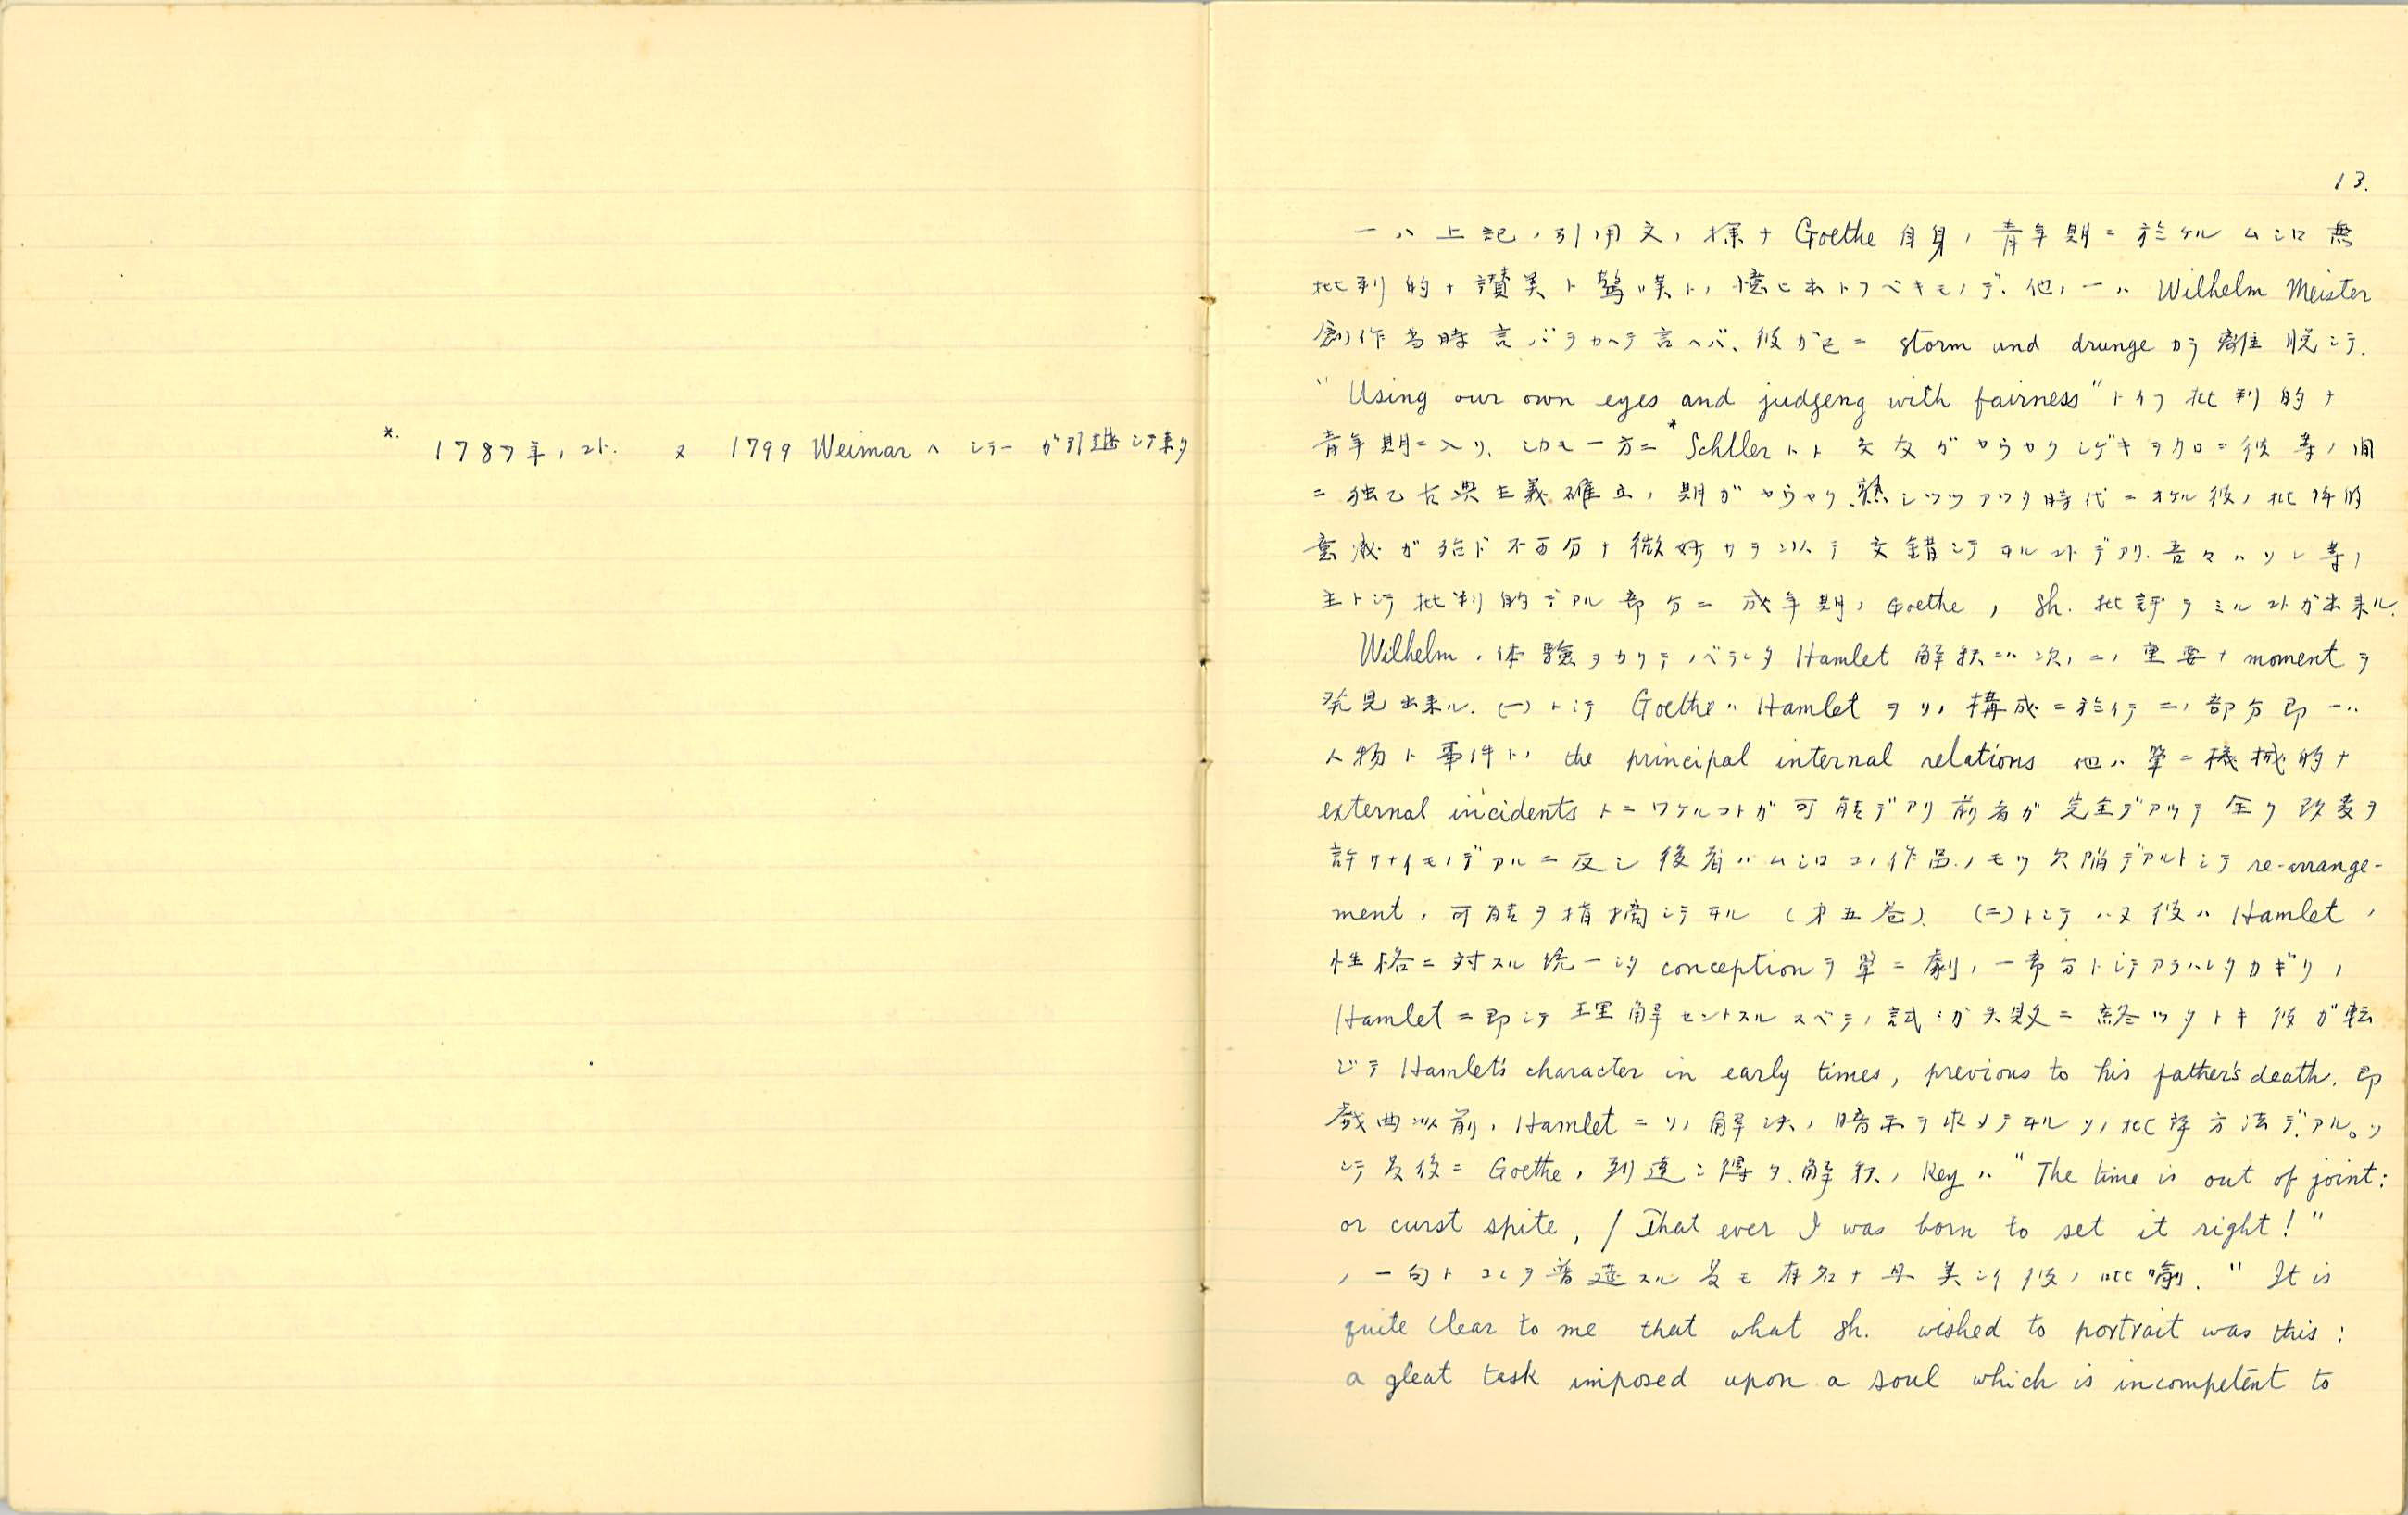 *. 1787年ノコト. 又 1799 Weimar ヘ シラー ガ引越シテ来タ
13.
一ハ上記ノ引用文ノ様ナ Goethe 自身ノ青年期ニ於ケルムシロ無
批判的ナ讃美ト驚嘆トノ憶ヒ出トフベキモノデ、他ノ一ハ Wilhelm Meister
創作当時言バヲカヘテ言ヘバ、彼ガ已ニ storm und drunge カラ離脱シテ.
"Using our own eyes and judgeng with fairness" トイフ批判的ナ
青年期ニ入リ、シカモ一方ニ *Schller トノ交友ガヤウヤクシゲキヲ加ヘ彼等ノ間
ニ独乙古典主義確立ノ期ガヤウヤク熟シツツアツタ時代ニオケル彼ノ批評的
意識ガ殆ド不可分ナ微妙サヲ以テ交錯シテヰルコトデアリ. 吾々ハソレ等ノ
主トシテ批判的デアル部分ニ成年期ノ Goethe ノ Sh. 批評ヲミルコトガ出来ル.
Wilhelm ノ体験ヲカリテノベラレタ Hamlet 解釈ニハ次ノ二ノ重要ナ moment ヲ
発見出来ル. (一)トシテ Goethe ハ Hamlet ヲソノ構成ニ於イテ二ノ部分即一ハ
人物ト事件トノ the principal internal relations 他ハ単ニ機械的ナ
external incidents トニワケルコトガ可能デアリ前者ガ完全デアツテ全ク改変ヲ
許サナイモノデアルニ反シ後者ハムシロコノ作品ノモツ欠陥デアルトシテ re-arrange-
ment ノ可能ヲ指摘シテヰル (第五巻). (二)トシテハ又彼ハ Hamlet ノ
性格ニ対スル統一シタ conception ヲ単ニ劇ノ一部分トシテアラハレタカギリノ
Hamlet ニ即シテ理解セントスルスベテノ試ミガ失敗ニ終ツタトキ彼ガ転
ジテ Hamlet's character in early times, previous to his father's death. 即
戯曲以前ノ Hamlet ニソノ解決ノ暗示ヲ求メテヰルソノ批評方法デアル。ソ
シテ最後ニ Goethe ノ到達シ得タ解釈ノ Key ハ "The time is out of joint:
or curst spite, / That ever I was born to set it right!"
ノ一句トコレヲ スル最モ有名ナ 美シイ彼ノ比喩. "It is
quite clear to me that what Sh. wished to portrait was this:
a gleat task imposed upon a soul which is incompetent to